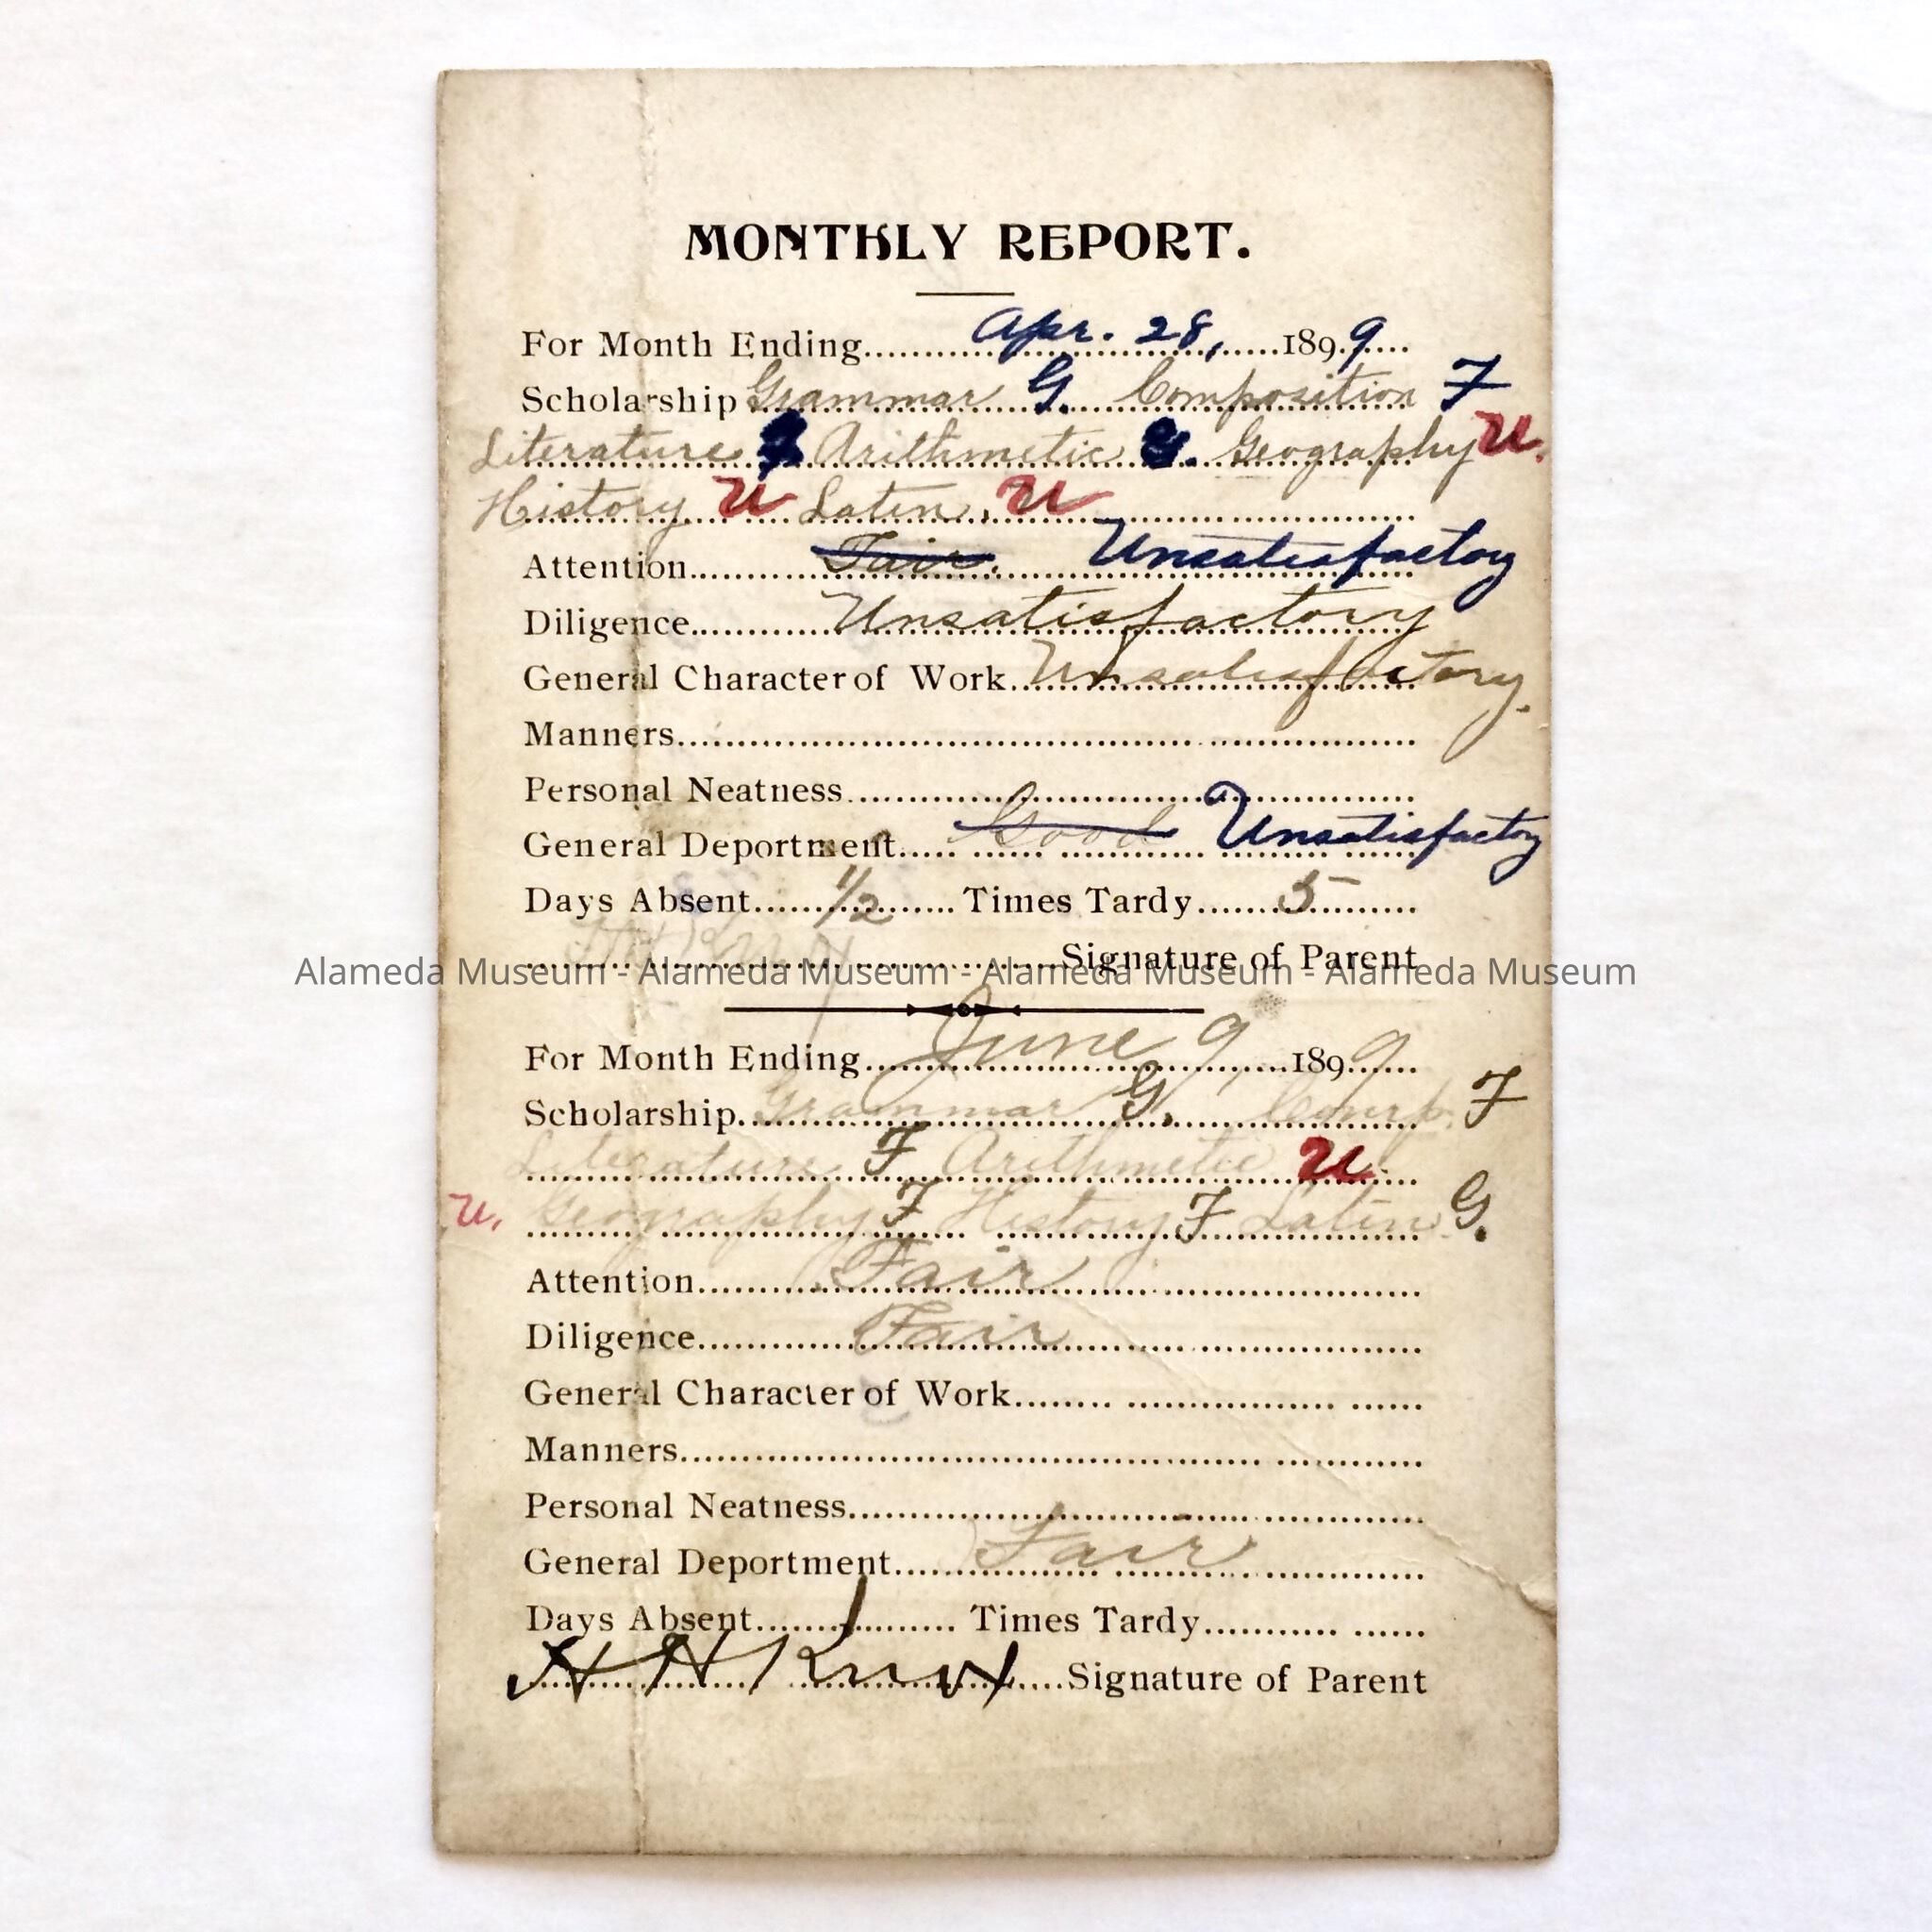 MONTHLY REPORT.
For Month Ending Apr. 28, 1899
Scholarship Grammar G. Composition F
Literature Arithmetic Geography U.
History U Latin. U
Attention Fair. Unsatisfactory
Diligence Unsatisfactory
General Character of Work Unsatisfactory.
Manners
Personal Neatness
General Deportment Good Unsatisfactory
Days Absent 1/2 Times Tardy 5
Signature of Parent
Alameda Museum - Alameda Museum - Alameda Museum - Alameda Museum
For Month Ending June 9, 1899
Scholarship Grammar G. Comp. F
Literature F Arithmetic U.
U. Geography F History F Latin G.
Attention Fair
Diligence Fair
General Character of Work
Manners
Personal Neatness
General Deportment Fair
Days Absent 1 Times Tardy
H H Signature of Parent